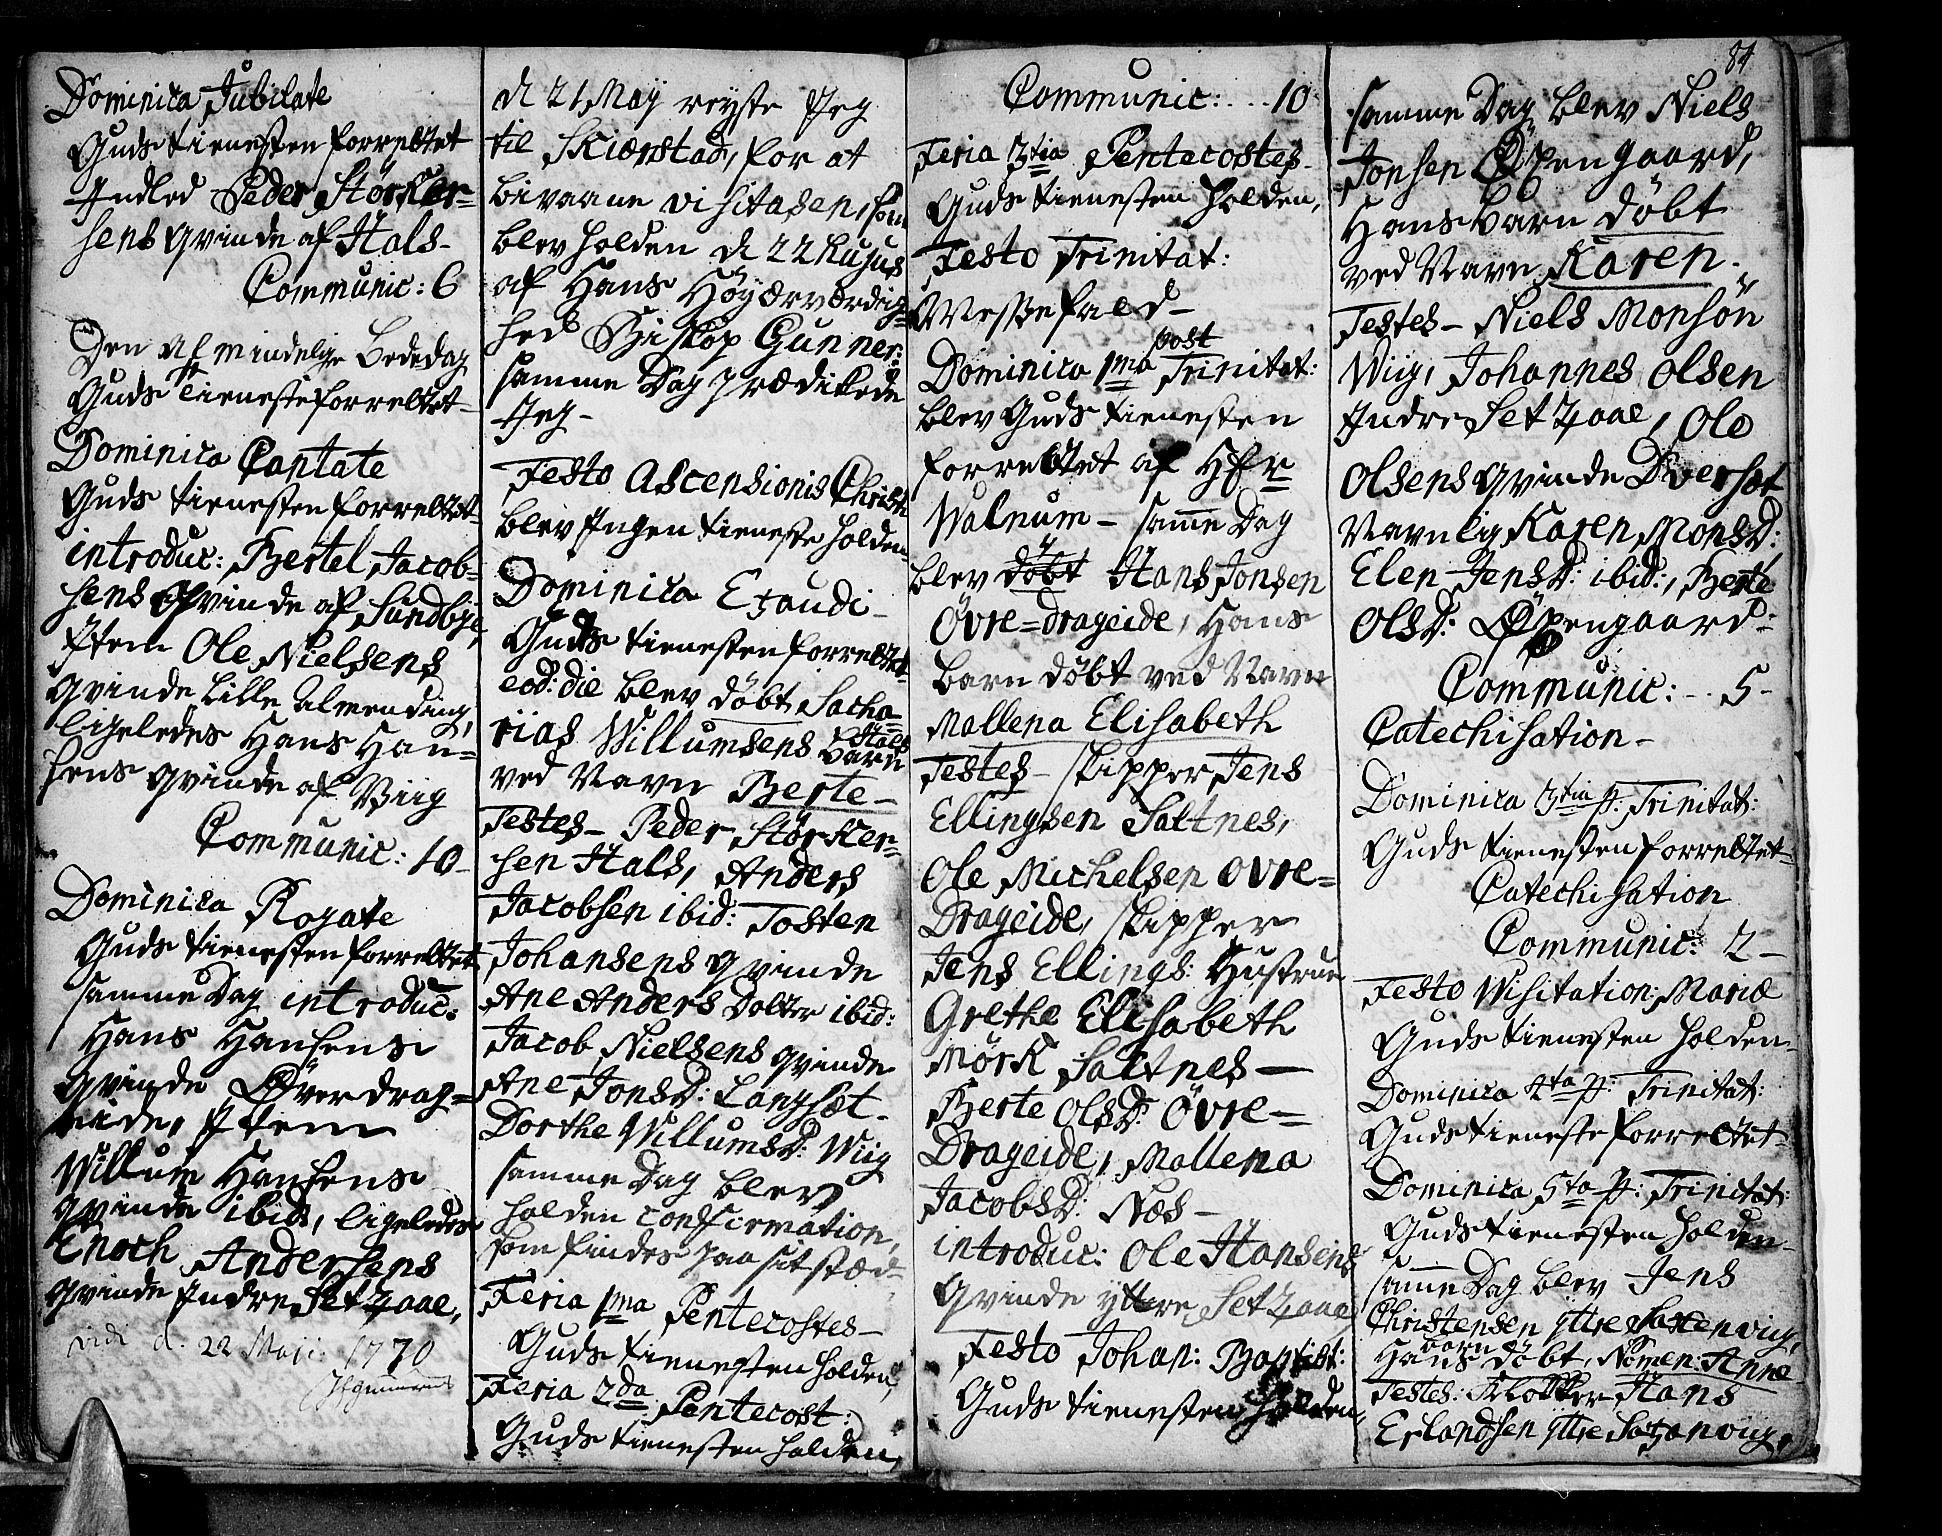 Dominica Jubilate
Guds tienesten forrettet
Indled Peder Störker=
sens qvinde af Hals-
Communic: 6
Den Almindelige Bededag
Guds tieneste forrettet-
Dominica Cantate
Guds tienesten forrettet-
introduc: Bertel Jacob=
sens qvinde af Sundbye,
Item Ole Nielsens
qvinde Lille Almending,
ligeledes Hans Han=
sens qvinde af Viig
Communic: 10-
Dominica Rogate
Guds tienesten forrettet
samme Dag introduc:
Hans Hansens
qvinde Över drag=
eide, Item
Willum Hansens
qvinde ibid, ligeledes
Enoch Andersens
qvinde Indre Setzaae,
vidi d. 22 Maji 1770
d 21 May reyste Jeg
til Skiærstad, for at
bivaane visitasen, som
blev holden d 22 hujus
af Hans Höyærværdig=
hed Biskop Gunner:
samme Dag prædikede
Jeg-
Festo Ascensionis Christi
blev Ingen tieneste holden
Dominica Exaudi-
Guds tienesten forrettet-
eod: die blev döbt Sacha=
rias Willumsens Hals Barn
ved Navn Berte-
Testes- Peder Störker=
sen Hals, Anders
Jacobsen ibid: Tosten
Johansens qvinde
Ane Anders Dotter ibid:
Jacob Nielsens qvinde
Ane JonsD: Langset-
Dorthe WillumsD: Wiig
samme Dag blev
holden confirmation,
som findes paa sit stæd-
Feria 1ma Pentecostes-
Guds tienesten holden,
Feria 2da Pentecost:
Guds tienesten holden,
Communic: ... 10
Feria 3tia Pentecostes-
Guds tienesten holden,
Festo Trinitat:
Messefald-
Dominica 1ma post Trinitat:
blev Guds tienesten
forrettet af HEr
Walnum- samme Dag
blev döbt Hans Jonsen
Övre=drageide, Hans
barn döbt ved Navn
Mallena Elisabeth
Testes- skipper Jens
Ellingsen Saltnes,
Ole Michelsen Ovre=
Drageide, skipper
Jens Ellings: Hustrue
Grethe Elisabeth
Mörk Saltnes-
Berte OlsD: Övre=
Drageide, Mallena
JacobsD: Næs-
introduc: Ole Hansens
qvinde yttre Setzaae
Festo Johan: Baptist:
Guds tienesten holden,
84
samme Dag blev Niels
Jonsen Öpengaard,
Hans barn döbt
ved Navn Karen-
Testes- Niels Monsön
Wiig, Johannes Olsen
Indre Setzaae, Ole
Olsens qvinde Dverset
Navnlig Karen MonsD:
Elen JensD: ibid:, Berte
OlsD: Öpengaard:
Communic: -.. 5-
Catechisation-
Dominica 3tia p: Trinitat:
Guds tienesten forrettet-
Catechisation
Communic: 2-
Festo Visitation: Mariæ
Guds tienesten holden-
Dominica 4ta p: Trinitat:
Guds tieneste forrettet-
Dominica 5ta p: Trinitat:
Guds tienesten holden-
samme Dag blev Jens
Christensen yttre
Hans barn döbt, Nomen: Anne
Testes: Klokker Hans
Erlandsen yttre